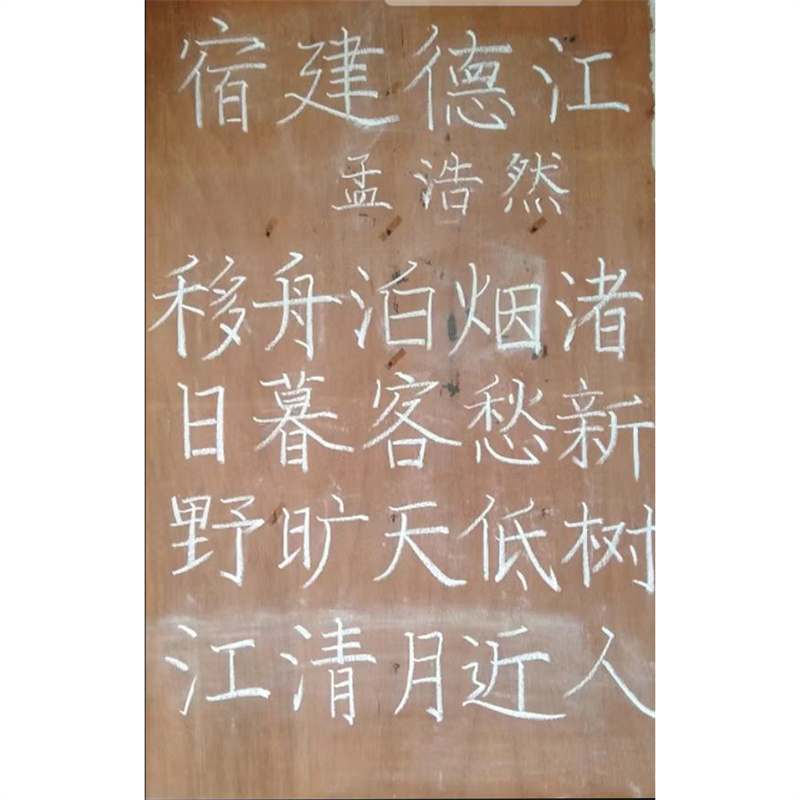 宿建德江
孟浩然
移舟泊烟渚
日暮客愁新
野旷天低树
江清月近人